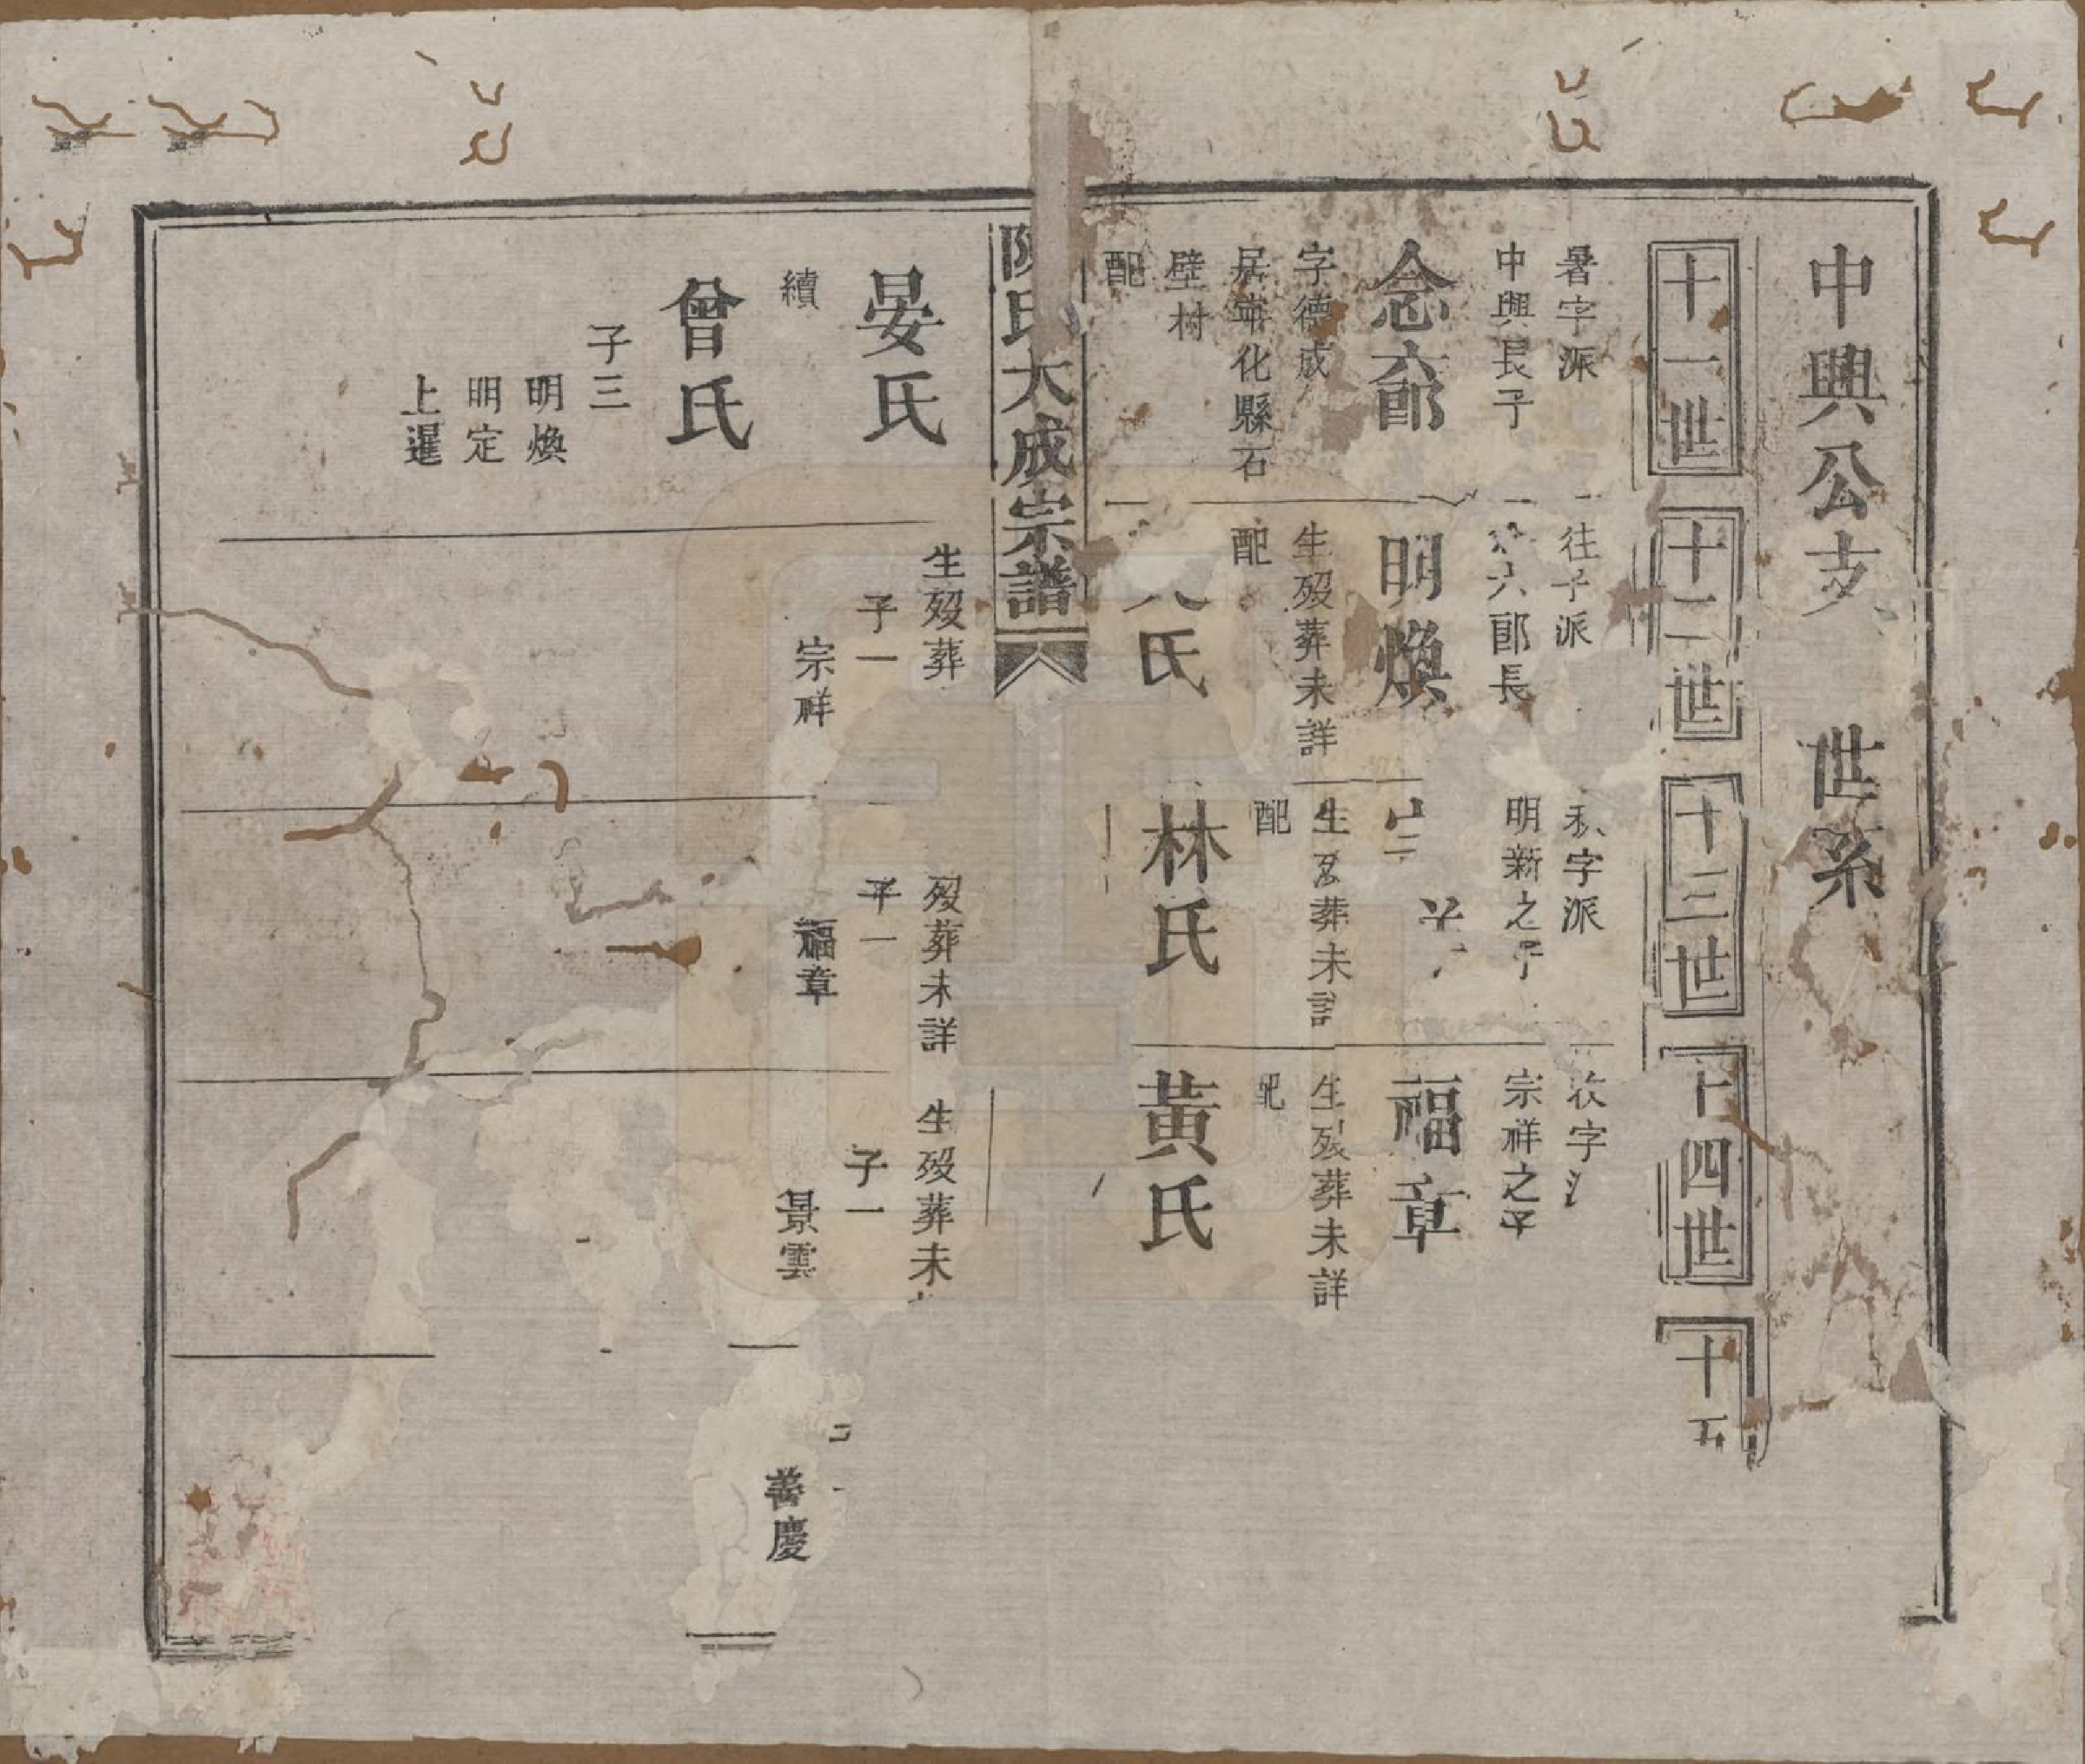 中興公支 世系
十一世
十二世
十三世
十四世
十五
暑字派
中興長子
念六郎
字德成
居寧化縣石
壁村
配
往字派
六郎長
明煥
生歿葬未詳
配
氏
秋字派
明新之子
生歿葬未詳
配
林氏
收字
宗祥之子
福章
生歿葬未詳
配
黃氏
陳氏大成宗譜
晏氏
續
曾氏
子三
明煥
明定
上暹
生歿葬
子一
宗祥
歿葬未詳
子一
福章
生歿葬未
子一
景雲
善慶